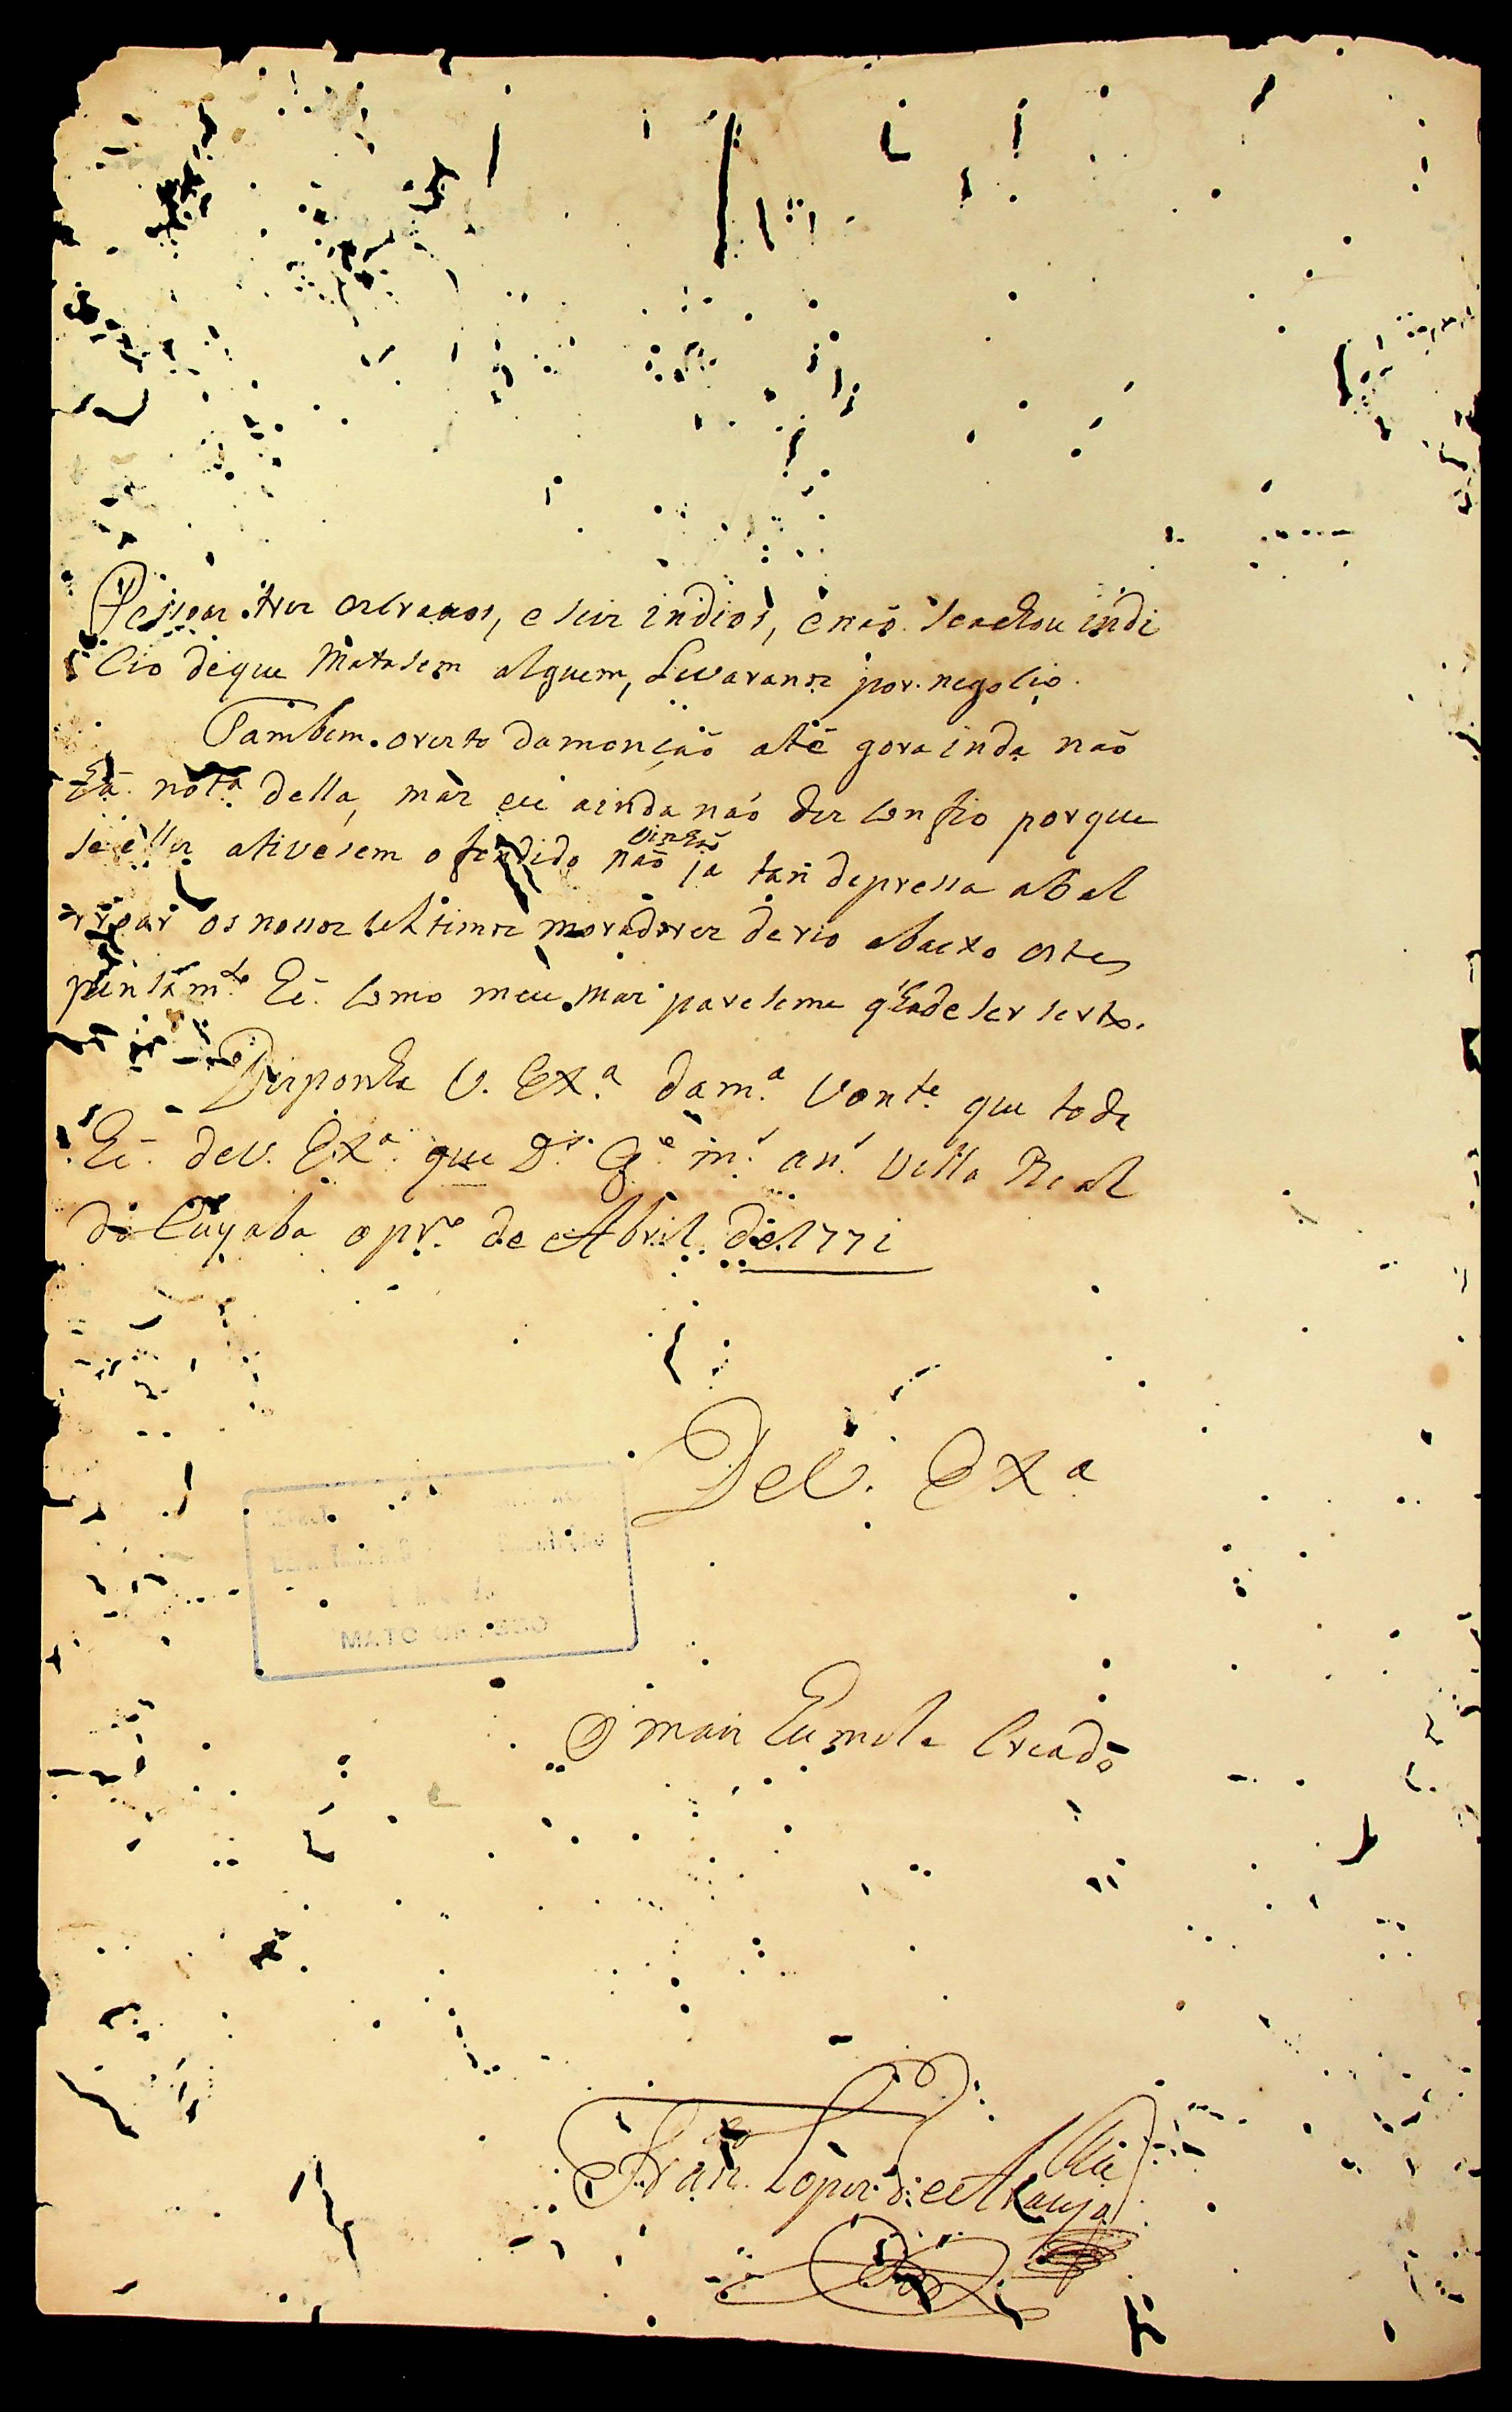 Pessoas tres escravos, e seis indios, enaõ seachou indi
cio deque Matasem alguem, Levaranos por negocio.
Tambem oresto damonçaõ até gora inda naõ
há notª della, mas eu ainda naõ des confio porque
se elles ativesem ofendido naõ vinhaõ ja tan depressa abal
rroar os nossos ultimos moradores derio abaixo este
pensamto hé como meu mas pareseme q hade ser serto.
Desponha V. Exª. damª. Vonte. que toda
hé deV. Exª. que Ds. Ge. ms. ans. Villa Real
do Cuyaba o pro. de Abril de 1771
DeV. Exª
O mais humilde Creado
Franco. Lopes de Araujo
MATO GROSSO